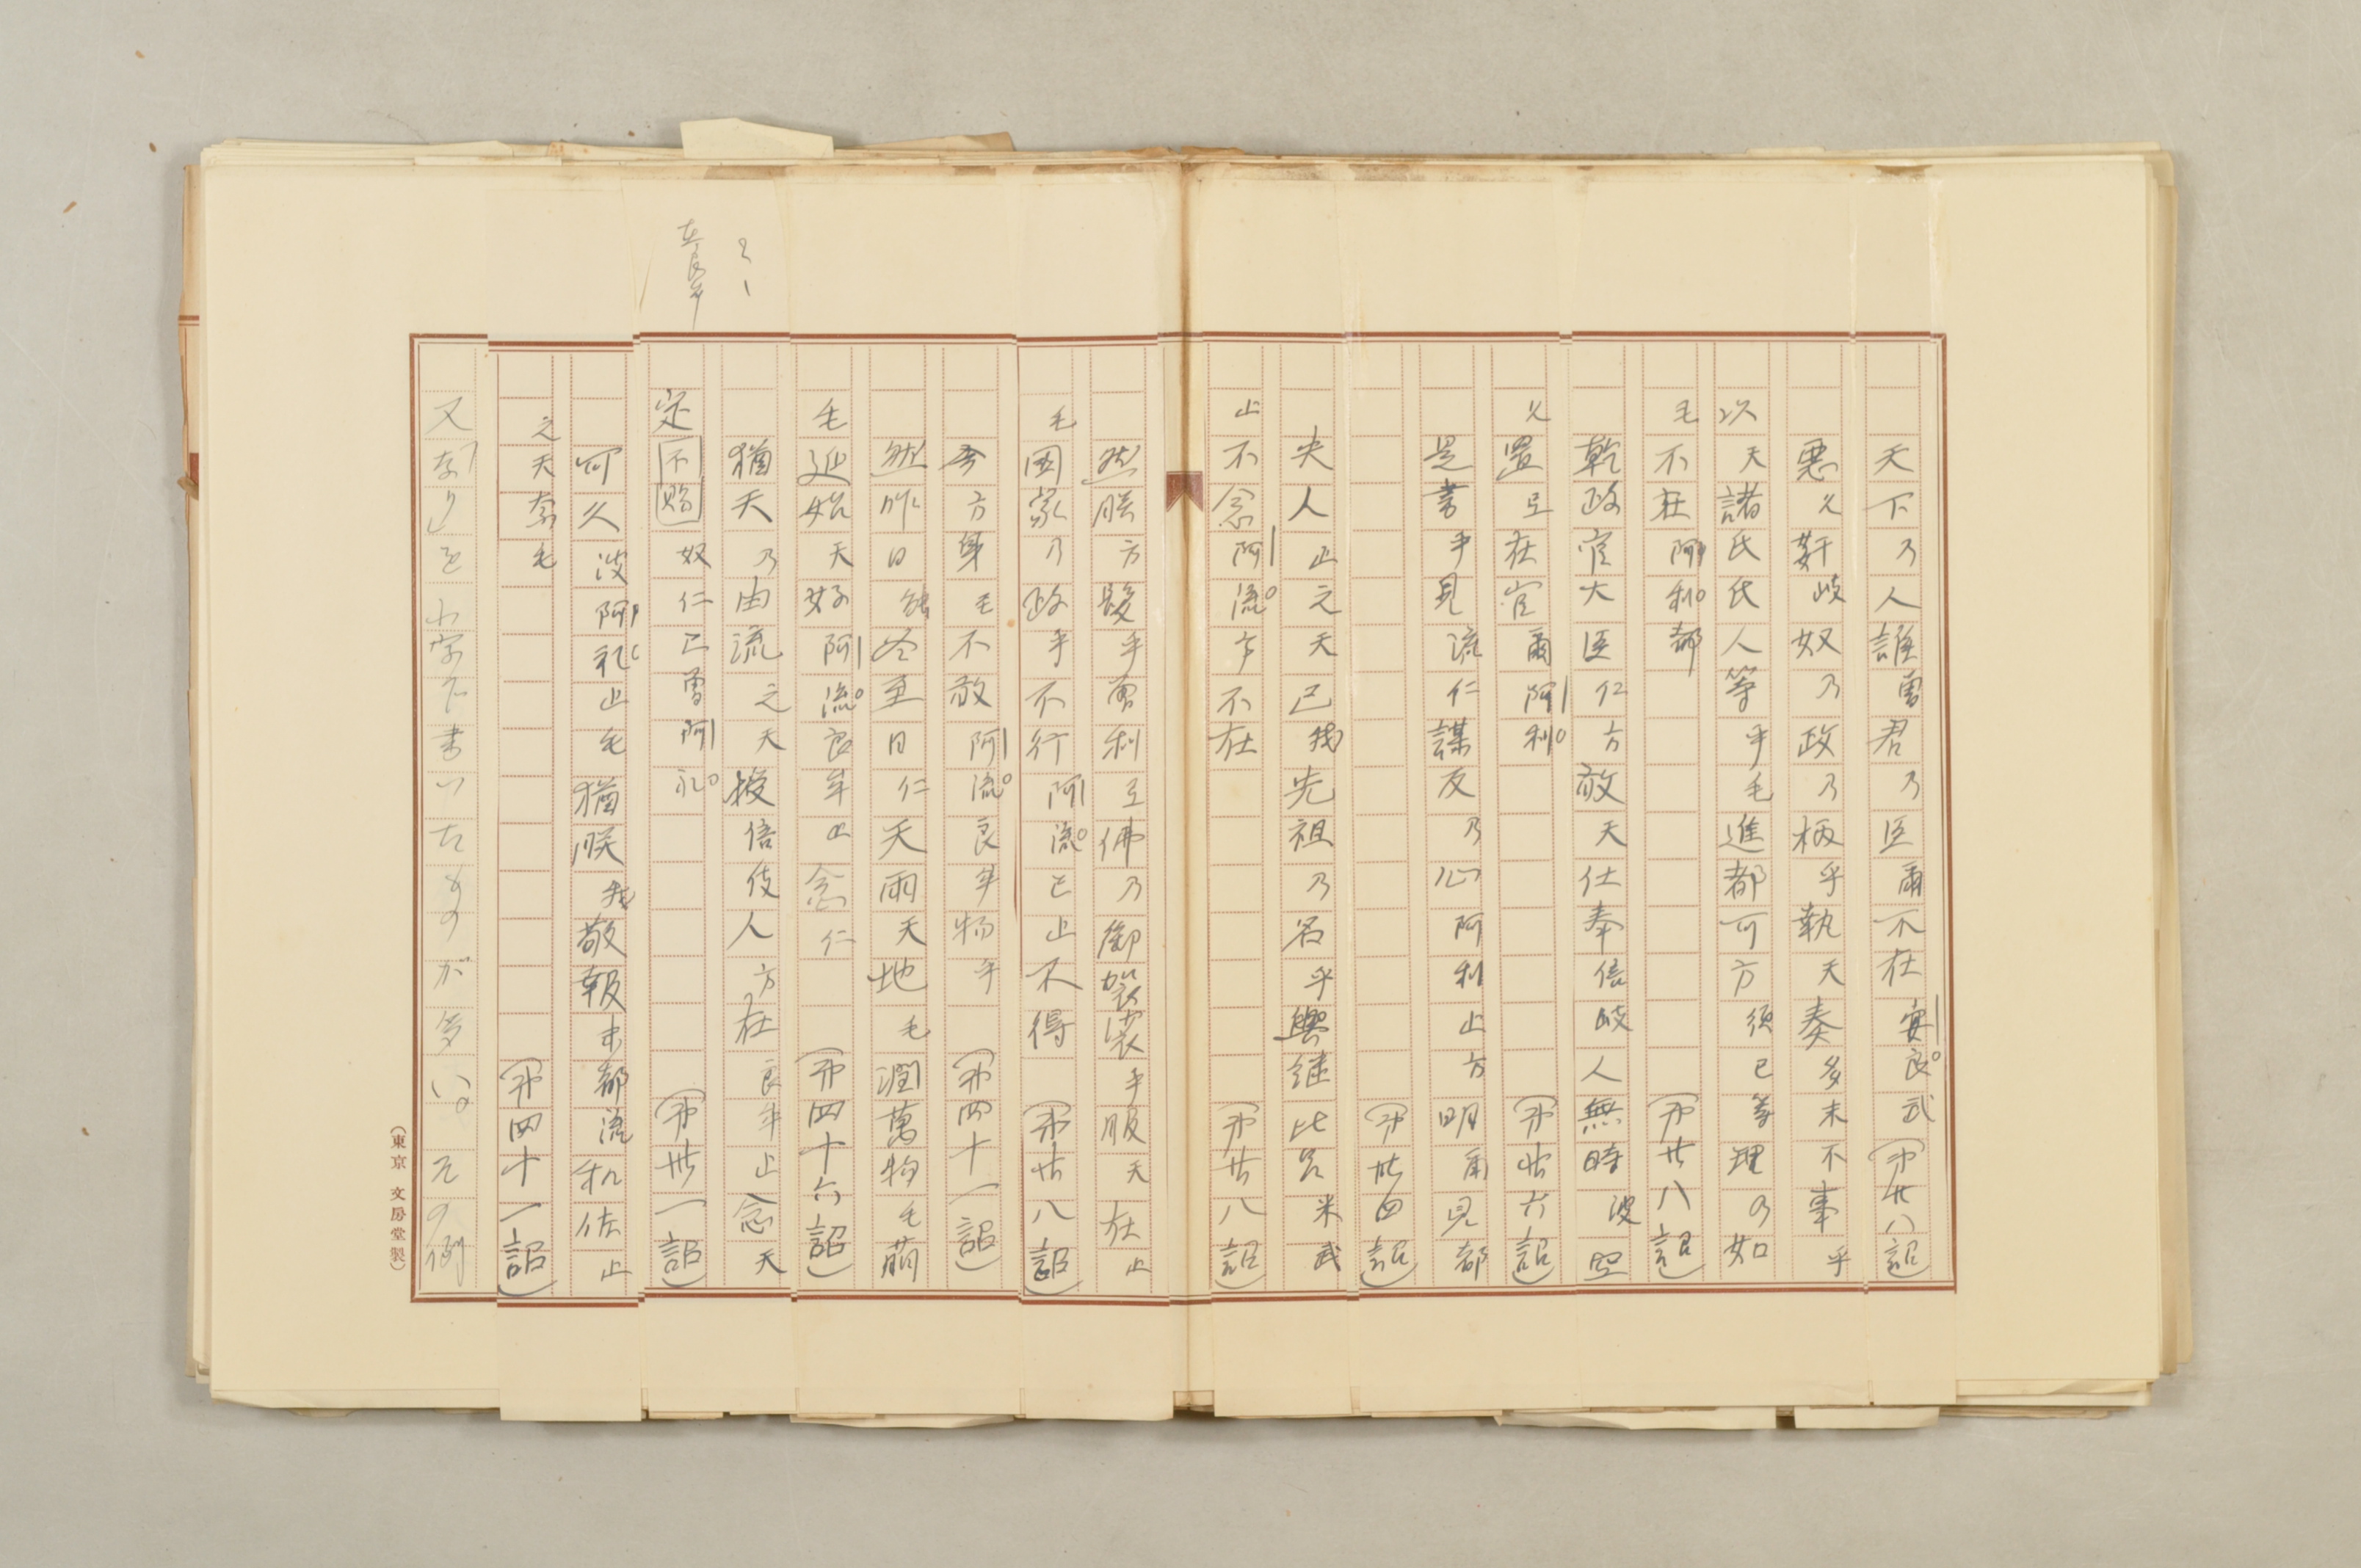 天下乃人誰曽君乃臣爾不在安良武(第廿八詔)
悪久奸岐奴乃政乃柄乎執天奏多末不事乎
以天諸氏氏人等乎毛進都可方須己等理乃如
毛不在阿利都(第廿八詔)
乾政官大臣仁方敢天仕奉倍岐人無時波空
久置弖在官爾阿利(第廿六詔)
是書乎見流仁謀反乃心阿利止方明爾見都
(第卅四詔)
夫人止之天己我先祖乃名乎興継比呂米武
止不念阿流方不在(第廿八詔)
然朕方髪乎曽利弖佛乃御袈裟乎服天在止
毛國家乃政乎不行阿流己止不得(第廿八詔)
方身毛不敢阿流良牟物乎(第四十一詔)
然昨日能冬至日仁天雨天地毛潤萬物毛萠
毛延始天好阿流良牟止念仁(第四十六詔)
猶天乃由流之天授倍伎人方在良牟止念天
定不賜奴仁己曽阿礼(第卅一詔)
可久波阿礼止毛猶朕我敬報末都流和佐止
之天奈毛(第四十一詔)
又「なり」を小字で書いたものが多い。元の例
(東京 文房堂製)